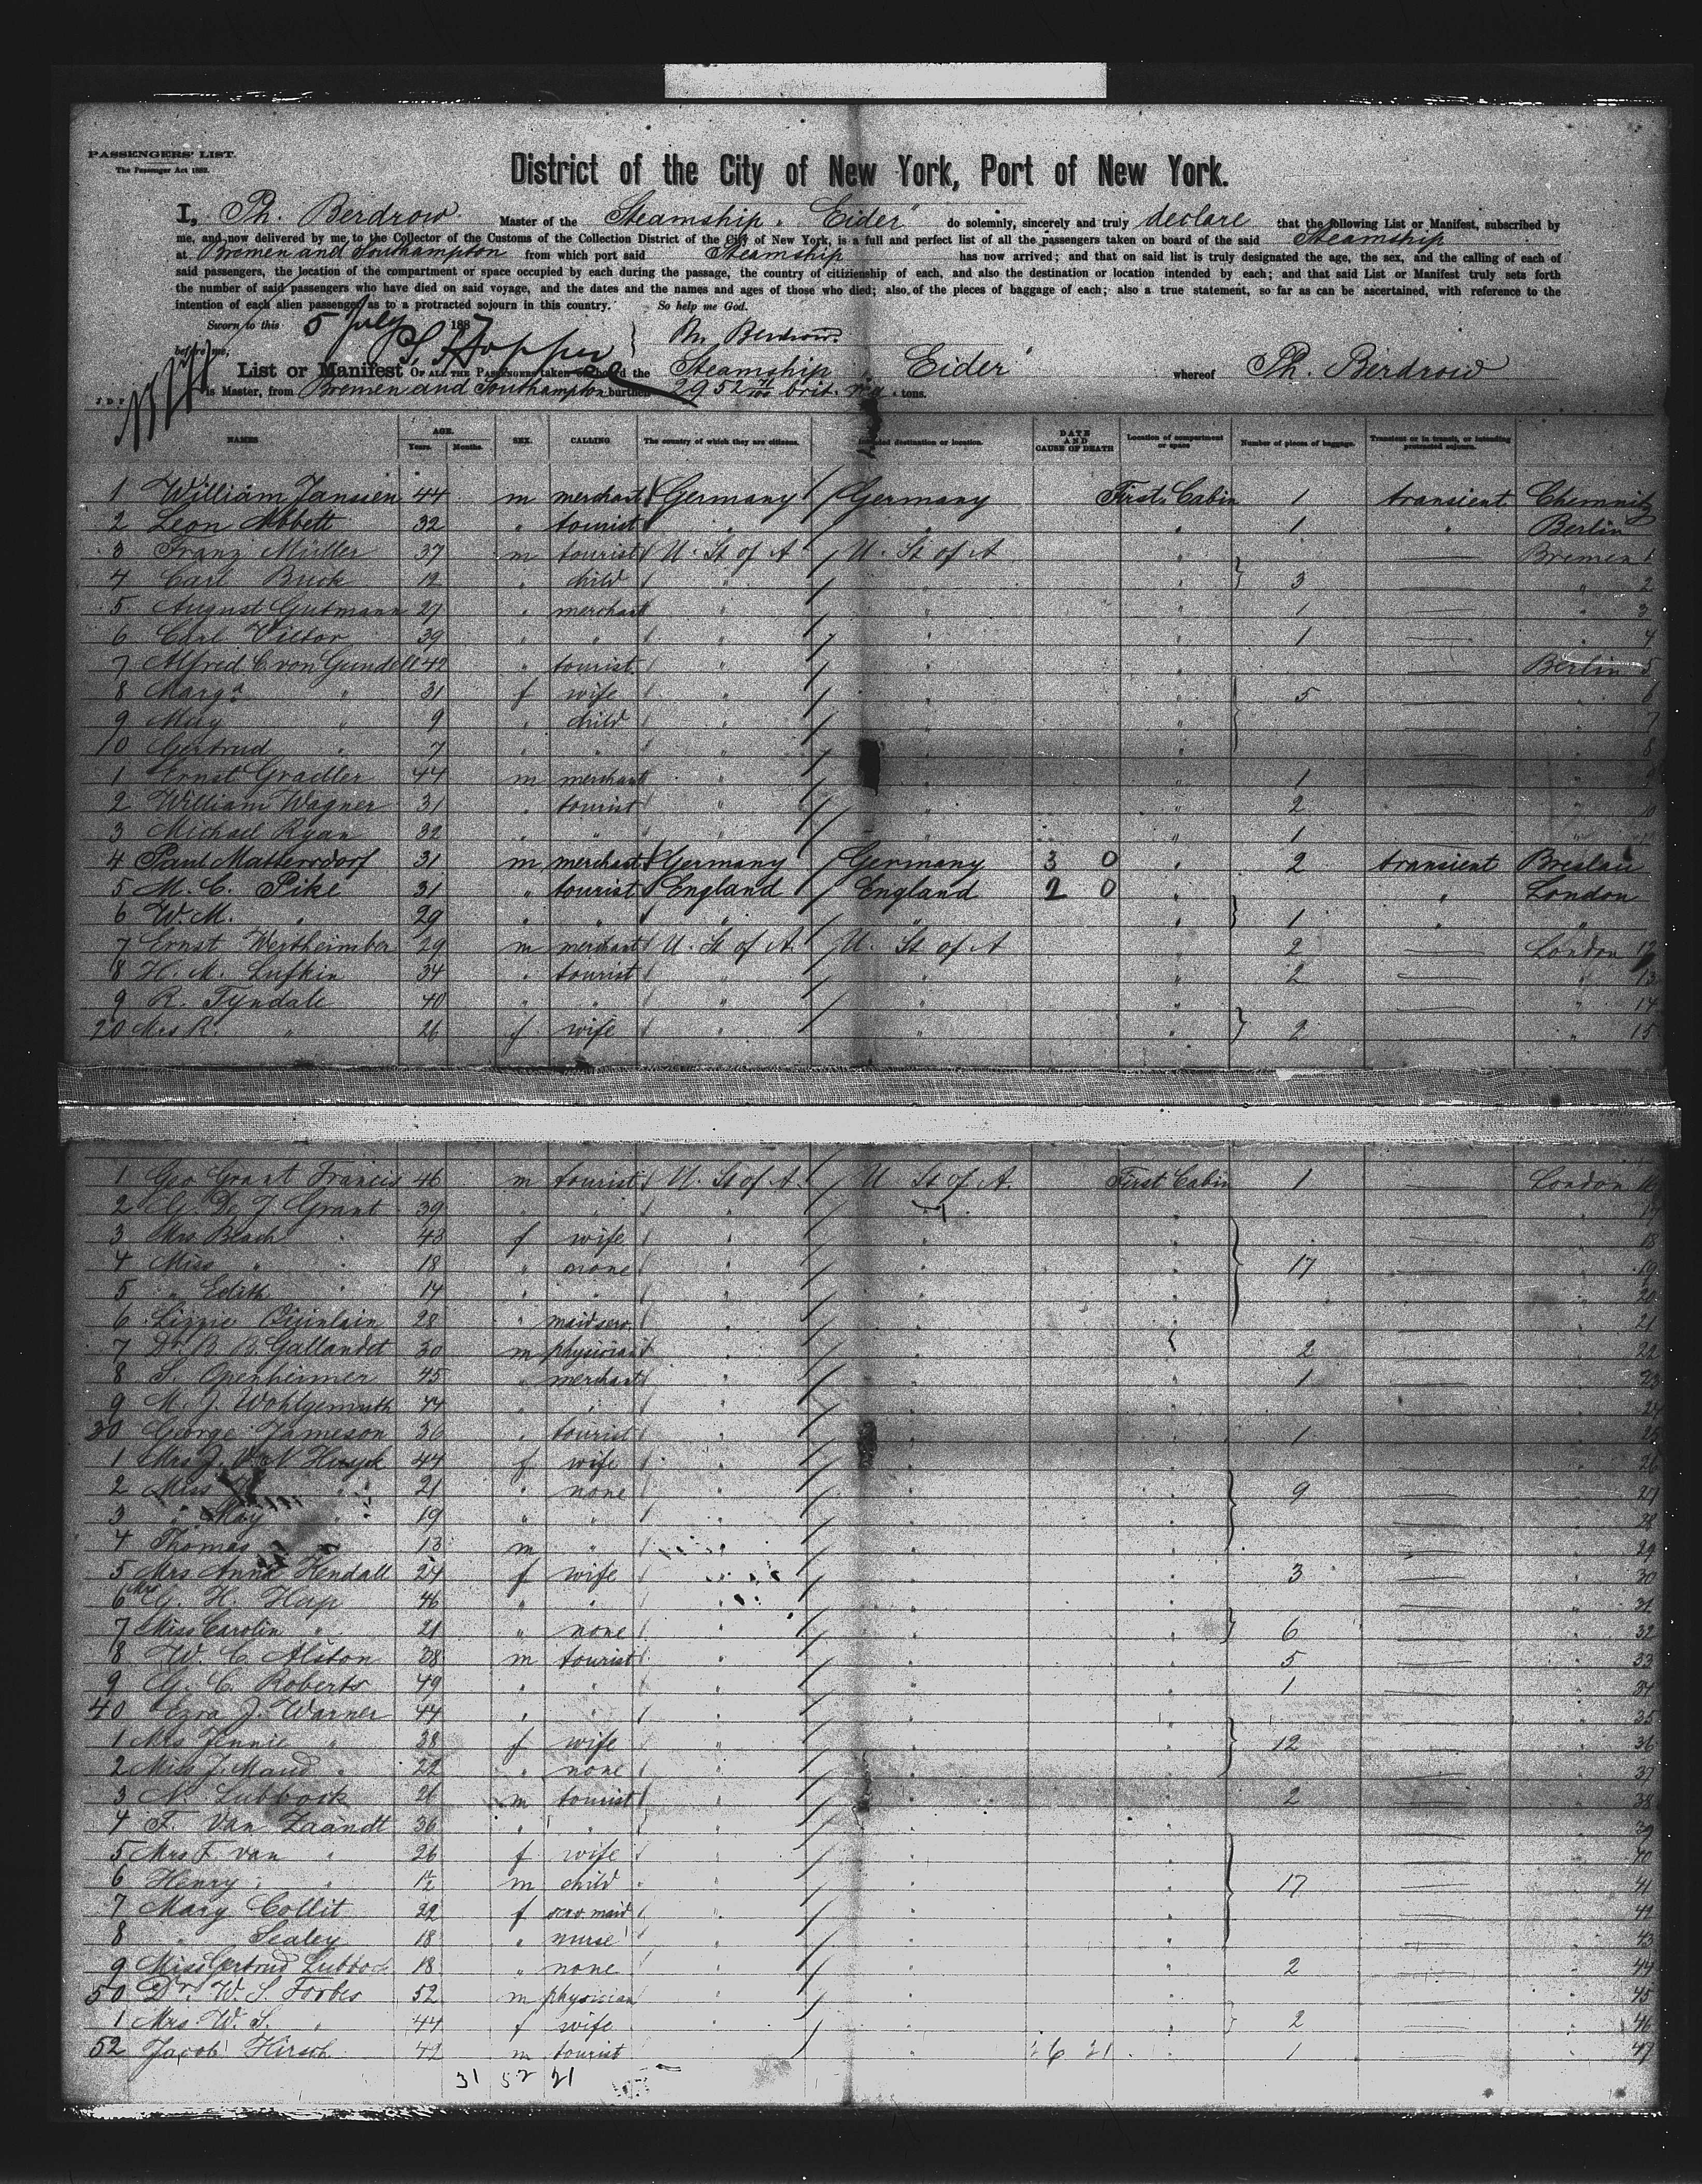 PASSENGERS' LIST.
The Passenger Act 1882.
District of the City of New York, Port of New York.
I, Ph. Berdrow Master of the Steamship "Eider" do solemnly, sincerely and truly declare that the following List or Manifest, subscribed by
me, and now delivered by me to the Collector of the Customs of the Collection District of the City of New York, is a full and perfect list of all the passengers taken on board of the said Steamship
at Bremen and Southampton from which port said Steamship has now arrived; and that on said list is truly designated the age, the sex, and the calling of each of
said passengers, the location of the compartment or space occupied by each during the passage, the country of citizienship of each, and also the destination or location intended by each; and that said List or Manifest truly sets forth
the number of said passengers who have died on said voyage, and the dates and the names and ages of those who died; also, of the pieces of baggage of each; also a true statement, so far as can be ascertained, with reference to the
intention of each alien passenger as to a protracted sojourn in this country. So help me God.
Sworn to this 5 July 1887
before me, Ph. Berdrow
List or Manifest OF ALL THE PASSENGERS taken on board the Steamship "Eider" whereof Ph. Berdrow
is Master, from Bremen and Southampton burthen 2952 brit. reg. tons.
NAMES AGE. Years. Months. SEX. CALLING The country of which they are citizens. Intended destination or location. DATE AND CAUSE OF DEATH Location of compartment or space Number of pieces of baggage. Transient or in transit, or intending protracted sojourn.
1 William Janssen 44 m merchant Germany Germany First Cabin 1 transient Chemnitz
2 Leon Abbett 32 " tourist " " " 1 " Berlin
3 Franz Müller 37 m tourist U. St of A U. St of A " Bremen 1
4 Carl Buck 12 " child " " " 3 " 2
5 August Gutmann 27 " merchant " " " 1 " 3
6 Carl Vietor 39 " " " " " 1 " 4
7 Alfred C von Gundell 42 " tourist " " " Berlin 5
8 Marga " 31 f wife " " " 5 " 6
9 May " 9 " child " " " 7
10 Gertrud " 7 " " " " " 8
1 Ernst Gradller 44 m merchant " " " 1 " 9
2 William Wagner 31 " tourist " " " 2 " 10
3 Michael Ryan 32 " " " " " 1 " 11
4 Paul Mattersdorf 31 m merchant Germany Germany 3 0 " 2 transient Breslau
5 M. C. Pike 31 " tourist England England 2 0 " " London
6 W. M. " 29 " " " " " 1 " "
7 Ernst Wertheimber 29 m merchant U. St of A. U. St of A " 2 London 12
8 H. M. Lufkin 34 " tourist " " " 2 " 13
9 R. Tyndale 40 " " " " " " 14
20 Mrs R. " 26 f wife " " " 2 " 15
1 Geo Grant Francis 46 m tourist U. St of A. U. St of A. First Cabin 1 London 16
2 G. De J Grant 39 " " " " " 17
3 Mrs Beach " 43 f wife " " " 18
4 Miss " " 18 " none " " " 17 " 19
5 " Edith " 14 " " " " " 20
6 Lizzie Quinlain 28 " maidserv. " " " 21
7 Dr B. B. Gallandet 30 m physician " " 2 " 22
8 S. Openheimer 45 " merchant " " " 1 " 23
9 M. J. Wohlgemuth 44 " " " " " 24
30 George Jameson 36 " tourist " " " 1 " 25
1 Mrs J. V. N 44 f wife " " " 26
2 Miss " 21 " none " " " 9 " 27
3 " May " 19 " " " " " 28
4 Thomas " 13 m " " " " 29
5 Mrs Anna Hendall 24 f wife " " " 3 " 30
6 Mrs G. H. Hap 46 " " " " " 31
7 Miss Carolin " 21 " none " " " 6 " 32
8 W. C. Alston 38 m tourist " " " 5 " 33
9 G. C. Roberts 49 " " " " " 1 " 34
40 Ezra J. Warner 44 " " " " " 35
1 Mrs Jennie " 38 f wife " " " 12 " 36
2 Miss J. Maud " 22 " none " " " 37
3 N. Lubbock 26 m tourist " " " 2 " 38
4 F. Van Zaandt 36 " " " " " 39
5 Mrs F. van " 26 f wife " " " 40
6 Henry " " 1/2 m child " " " 17 " 41
7 Mary Collit 22 f serv. maid " " " 42
8 " Sealey 18 " nurse " " " 43
9 Miss Gertrud Lubbock 18 " none " " " 2 " 44
50 Dr. W. S. Forbes 52 m physician " " " 45
1 Mrs W. S. " 44 f wife " " " 2 " 46
52 Jacob Hirsch 42 m tourist " 26 21 " 1 " 47
31 52 21